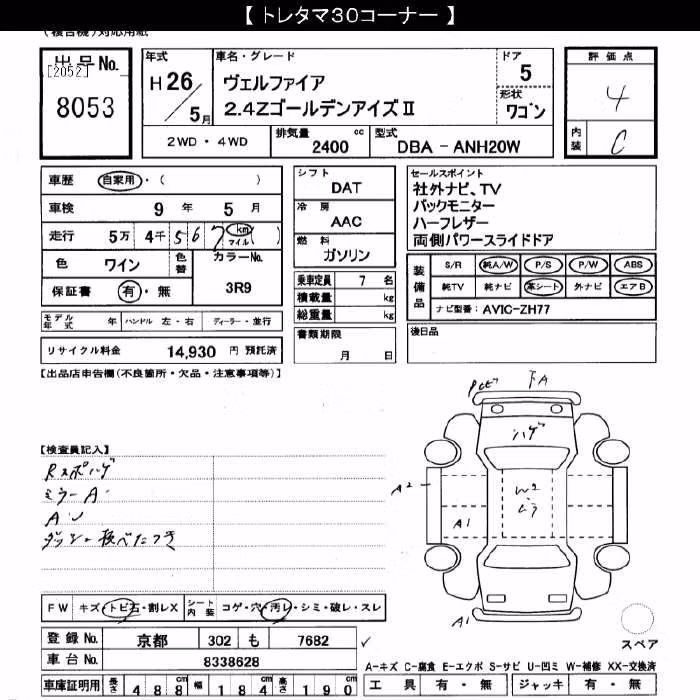 【 トレタマ３０コーナー 】
出品No.
[2052]
8053
年式
H 26 / 5 月
車名・グレード
ヴェルファイア
2.4ZゴールデンアイズⅡ
ドア
5
形状
ワゴン
評価点
4
内装
C
2WD ・ 4WD
排気量
2400 cc
型式
DBA - ANH20W
車歴
自家用 ・ ( )
車検
9 年 5 月
走行
5万 4千 5 6 7 km マイル ( )
色
ワイン
色替
カラーNo.
3R9
保証書
有 ・ 無
モデル年式 年
ハンドル 左・右
ディーラー・並行
リサイクル料金 14,930 円 預託済
シフト
DAT
冷房
AAC
燃料
ガソリン
乗車定員 7 名
積載量 kg
総重量 kg
書類期限
月 日
セールスポイント
社外ナビ、TV
バックモニター
ハーフレザー
両側パワースライドドア
装備品
S/R 純A/W P/S P/W ABS
純TV 純ナビ 革シート 外ナビ エアB
ナビ型番: AVIC-ZH77
後日品
【出品店申告欄(不良箇所・欠品・注意事項等)】
【検査員記入】
Rスポハゲ
ミラーA
下A
ハゲ
A2
A1
A1
FW キズ・トビ石・割レX
シート内装 コゲ・穴・汚レ・シミ・破レ・スレ
登録No. 京都 302 も 7682
車台No. 8338628
車庫証明用 長さ 488 cm 幅 184 cm 高さ 190 cm
スペア
A-キズ C-腐食 E-エクボ S-サビ U-凹ミ W-補修 XX-交換済
工具 有・無 ジャッキ 有・無